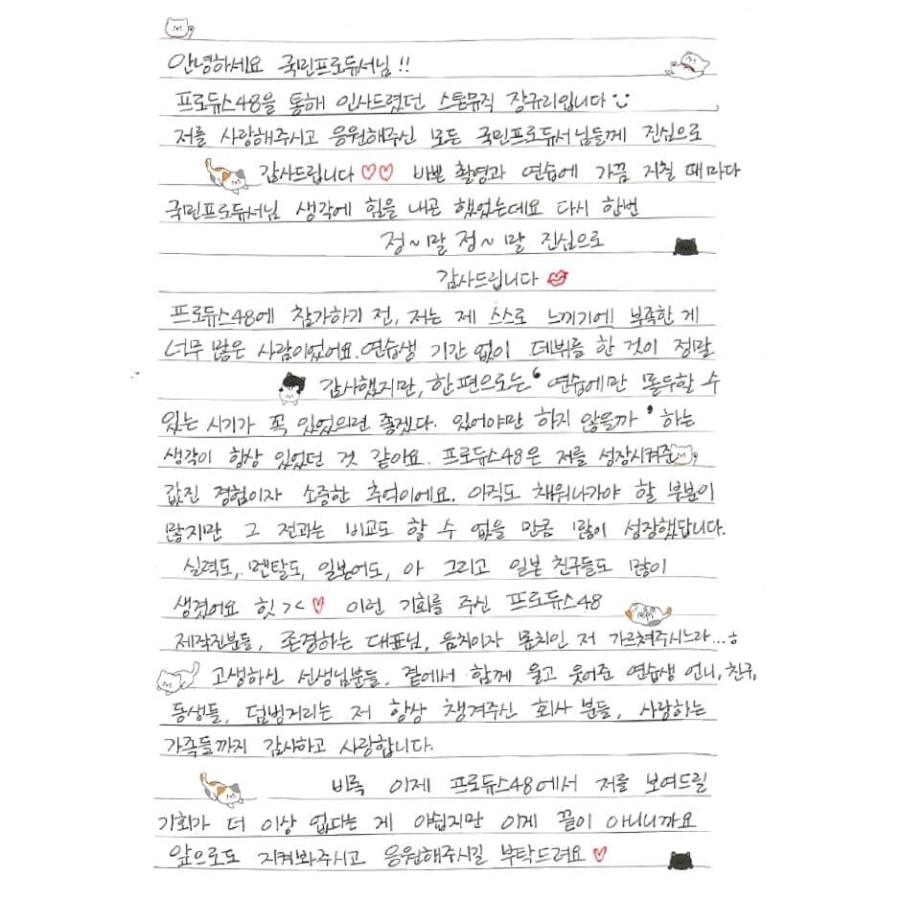 안녕하세요 국민프로듀서님!!
프로듀스48을 통해 인사드렸던 스톤뮤직 장규리입니다 :)
저를 사랑해주시고 응원해주신 모든 국민프로듀서님들께 진심으로
감사드립니다 ♡♡ 바쁜 촬영과 연습에 가끔 지칠 때마다
국민프로듀서님 생각에 힘을 내곤 했었는데요 다시 한번
정~말 정~말 진심으로
감사드립니다
프로듀스48에 참가하기 전, 저는 제 스스로 느끼기에 부족한 게
너무 많은 사람이었어요. 연습생 기간 없이 데뷔를 한 것이 정말
감사했지만, 한편으로는 ‘연습에만 몰두할 수
있는 시기가 꼭 있었으면 좋겠다. 있어야만 하지 않을까’ 하는
생각이 항상 있었던 것 같아요. 프로듀스48은 저를 성장시켜준
값진 경험이자 소중한 추억이에요. 아직도 채워나가야 할 부분이
많지만 그 전과는 비교도 할 수 없을 만큼 많이 성장했답니다.
실력도, 멘탈도, 일본어도, 아 그리고 일본 친구들도 많이
생겼어요 힛 ><♡ 이런 기회를 주신 프로듀스48
제작진분들, 존경하는 대표님, 음치이자 몸치인 저 가르쳐주시느라...ㅎ
고생하신 선생님분들, 곁에서 함께 울고 웃어준 연습생 언니, 친구,
동생들, 덤벙거리는 저 항상 챙겨주신 회사 분들, 사랑하는
가족들까지 감사하고 사랑합니다.
비록 이제 프로듀스48에서 저를 보여드릴
기회가 더 이상 없다는 게 아쉽지만 이게 끝이 아니니까요
앞으로도 지켜봐주시고 응원해주시길 부탁드려요 ♡